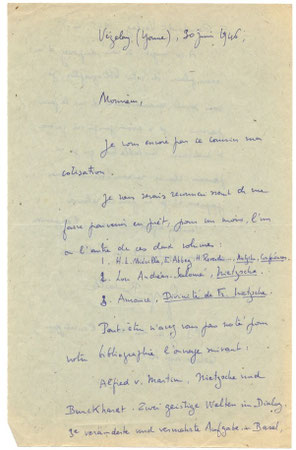 Vézelay (Yonne), 30 juin 1946.
Monsieur,
Je vous envoie par ce courrier ma
cotisation.
Je vous serais reconnaissant de me
faire parvenir en prêt, pour un mois, l'un
ou l'autre de ces deux volumes :
1. H. L. Miéville, E. Abbey,
2. Lou Andréas-Salomé, Nietzsche
3. Divinité de Fr. Nietzsche.
Peut-être n'avez vous pas noté pour
votre bibliographie l'ouvrage suivant :
Alfred v. Martin, Nietzsche und
Burckhardt. Zwei geistige Welten im Dialog.
3e veränderte und vermehrte Auflage, Basel,